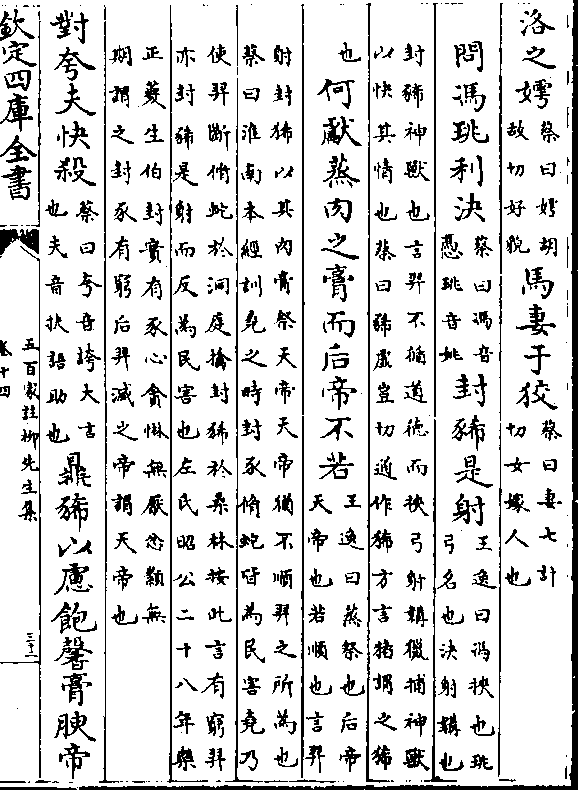 洛之嫮蔡曰嫮胡故切好貌馬妻于狡蔡曰妻七計切女嫁人也
問馮珧利決蔡曰馮音慿珧音姚封豨是射王逸曰馮挾也珧弓名也決射韝也
封豨神獸也言羿不循道德而挾弓射韝獵捕神獸以快其情也蔡曰豨虛豈切通作狶方言猪謂之豨
也何獻蒸肉之膏而后帝不若王逸曰蒸祭也后帝天帝也若順也言羿
射封狶以其肉膏祭天帝天帝猶不順羿之所為也蔡曰淮南本經訓堯之時封豕脩蛇皆為民害堯乃
使羿斷脩蛇於洞庭擒封狶於桑林按此言有窮羿亦封豨是射而反為民害也左氏昭公二十八年樂
正夔生伯封實有豕心貪惏無厭忿纇無期謂之封豕有窮后羿滅之帝謂天帝也
對夸夫快殺蔡曰夸音誇大言也夫音扶語助也鼎豨以慮飽馨膏腴帝
欽定四庫全書
五百家註柳先生集
卷十四
三十二